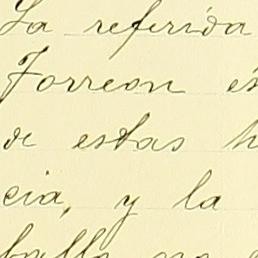 La referida
Torreon es
de estas h
cia, y la